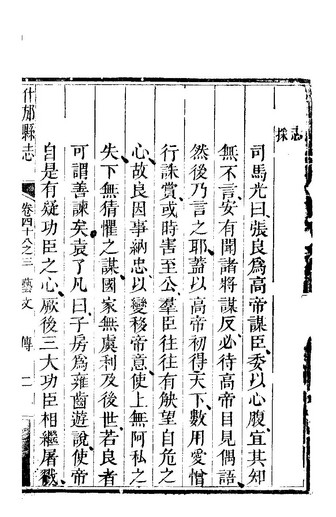 志採
司馬光曰張良爲高帝謀臣委以心腹宜其知
無不言安有聞諸將謀反必待高帝目見偶語
然後乃言之耶蓋以高帝初得天下數用愛憎
行誅賞或時害至公羣臣往往有觖望自危之
心故良因事納忠以變移帝意使上無阿私之
失下無猜懼之謀國家無虞利及後世若良者
可謂善諫矣袁了凡曰子房爲雍齒遊說使帝
自是有疑功臣之心厥後三大功臣相繼屠戮
什邡縣志
卷四十八之三 藝文 傳 二